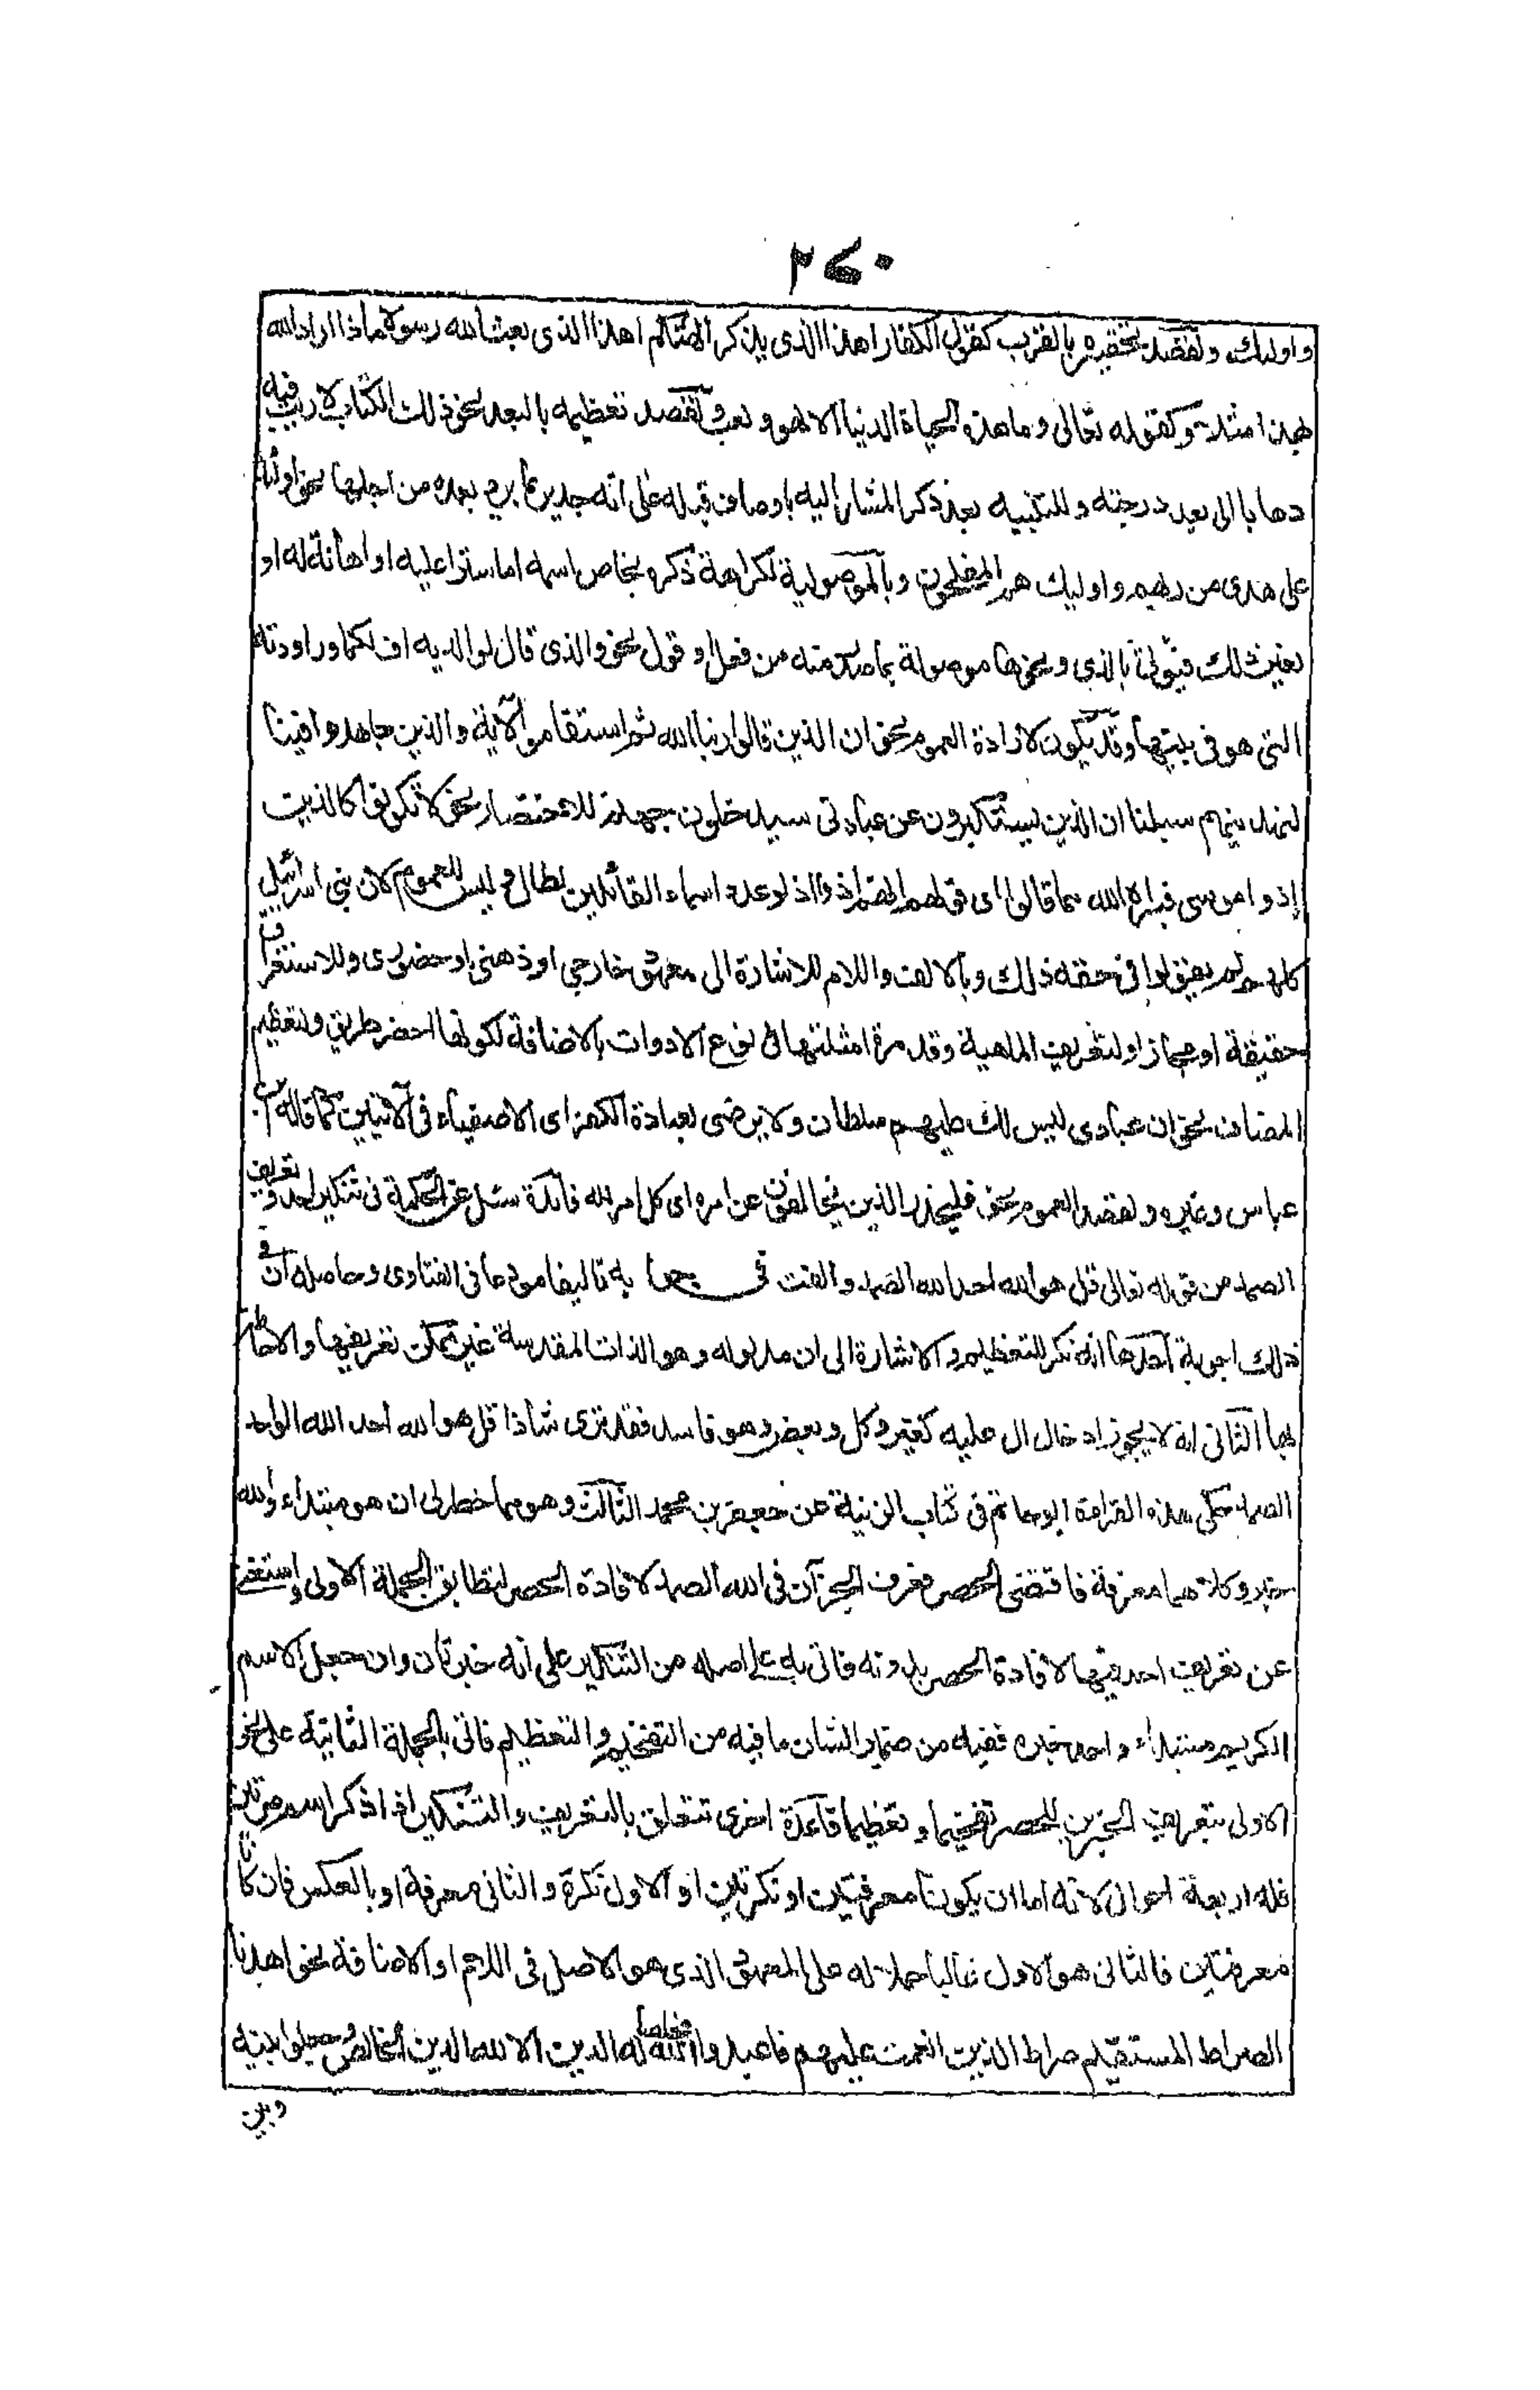 ٢٧٠
واوليك ولقصد تحقيره بالقرب كقول الكفار اهذا الذى يذكر الهتكم اهذا الذى بعث الله رسولا ماذا اراد الله
بهذا مثلا وكقوله تعالى وما هذه الحياة الدنيا الا لهو ولعب ولقصد تعظيمه بالبعد نحو ذلك الكتاب لا ريب فيه
ذهابا الى بعد درجته وللتنبيه بعد ذكر المشار اليه باوصاف قبله على انه جدير بما يرد بعده من اجلها نحو اولئك
على هدى من ربهم واوليك هم المفلحون وبالموصولية لكراهة ذكره بخاص اسمه اما سترا عليه او اهانة له او
لغير ذلك فيؤتى بالذى ونحوها موصولة بما صدر منه من فعل او قول نحو والذى قال لوالديه اف لكما وراودته
التى هو فى بيتها وقد يكون لارادة العموم نحو ان الذين قالوا ربنا الله ثم استقاموا الآية والذين جاهدوا فينا
لنهدينهم سبلنا ان الذين يستكبرون عن عبادتى سيدخلون جهنم وللاختصار نحو لا تكونوا كالذين
اذوا موسى فبراه الله مما قالوا اى قولهم انه آدر اذ لو عدد اسماء القائلين لطال وليس للعموم لان بنى اسرائيل
كلهم لم يقولوا فى حقه ذلك وبالالف واللام للاشارة الى معهود خارجى او ذهنى او حضورى وللاستغراق
حقيقة او مجازا ولتعريف الماهية وقد مرة امثلتها فى نوع الادوات بالاضافة لكونها اخصر طريق ولتعظيم
المضاف نحو ان عبادى ليس لك عليهم سلطان ولا يرضى لعباده الكفر اى الاصفياء فى الآيتين كما قاله ابن
عباس وغيره ولقصد العموم نحو فليحذر الذين يخالفون عن امره اى كل امر لله فائدة سئل عن الحكمة فى تنكير احد وتعريف
الصمد من قوله تعالى قل هو الله احد الله الصمد والفت فى جوابه تاليفا مودعا فى الفتاوى وحاصله ان فى
ذلك اجوبة احدها انه نكر للتعظيم والاشارة الى ان مدلوله وهو الذات المقدسة غير ممكن تعريفها والاحاطة
بها الثانى انه لا يجوز ادخال ال عليه كغير وكل وبعض وهو فاسد فقد قرى شاذا قل هو الله احد الله الواحد
الصمد حكى هذه القراءة ابو حاتم فى كتاب الزينة عن جعفر بن محمد الثالث وهو مما خطر لى ان هو مبتداء والله
خبر وكلاهما معرفة فاقتضى الحصر فعرف الجزآن فى الله الصمد لافادة الحصر لتطابق الجملة الاولى واستغنى
عن تعريف احد فيها لافادة الحصر بدونه فاتى به على اصله من التنكير على انه خبر ثان وان جعل الاسم
الكريم مبتداء واحد خبره ففيه من ضمير الشان ما فيه من التفخيم والتعظيم فاتى بالجملة الثانية على نحو
الاولى بتعريف الجزين للحصر تفخيما وتعظيما قاعدة اخرى تتعلق بالتعريف والتنكير اذا ذكر اسم مرتين
فله اربعة احوال لانه اما ان يكونا معرفتين او نكرتين او الاول نكرة والثانى معرفة او بالعكس فان كانا
معرفتين فالثانى هو الاول غالبا حملا له على المعهود الذى هو الاصل فى اللام او الاضافة نحو اهدنا
الصراط المستقيم صراط الذين انعمت عليهم فاعبدوا الله مخلصا له الدين الا لله الدين الخالص وجعلوا بينه
وبين